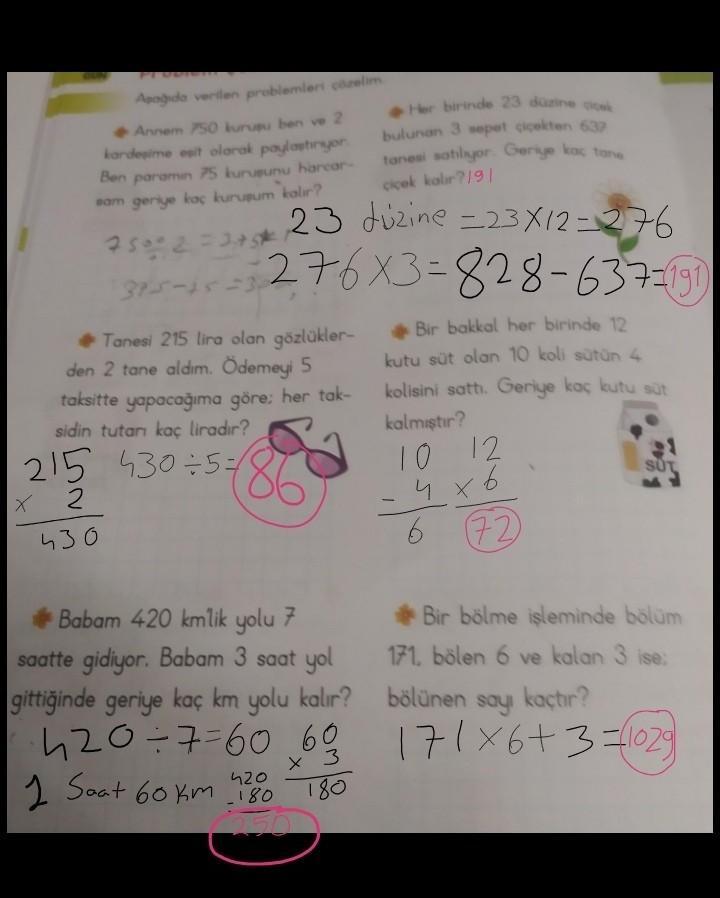 GÜN
Aşağıda verilen problemleri çözelim.
Annem 750 kuruşu ben ve 2
kardeşime eşit olarak paylaştırıyor.
Ben paramın 75 kuruşunu harcar-
sam geriye kaç kuruşum kalır?
750÷2=375
Her birinde 23 düzine çiçek
bulunan 3 sepet çiçekten 637
tanesi satılıyor. Geriye kaç tane
çiçek kalır? 191
23 düzine =23x12=276
276x3=828-637=191
Tanesi 215 lira olan gözlükler-
den 2 tane aldım. Ödemeyi 5
taksitte yapacağıma göre; her tak-
sidin tutarı kaç liradır?
215
x 2
430
430÷5=86
Bir bakkal her birinde 12
kutu süt olan 10 koli sütün 4
kolisini sattı. Geriye kaç kutu süt
kalmıştır?
SÜT
10
- 4
6
12
x 6
72
Babam 420 km'lik yolu 7
saatte gidiyor. Babam 3 saat yol
gittiğinde geriye kaç km yolu kalır?
420÷7=60
60
x 3
180
1 Saat 60 Km
420
-180
250
Bir bölme işleminde bölüm
171, bölen 6 ve kalan 3 ise;
bölünen sayı kaçtır?
171x6+3=1029